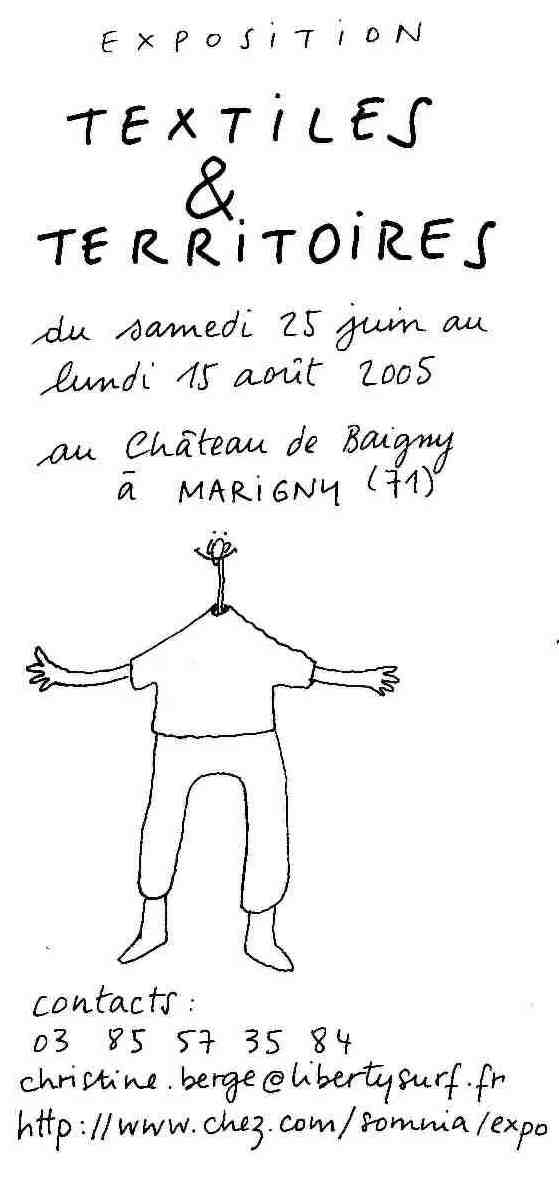 EXPOSITION
TEXTILES
&
TERRITOIRES
du samedi 25 juin au
lundi 15 août 2005
au Château de Baigny
à MARIGNY (71)
contacts :
03 85 57 35 84
christine.berge@libertysurf.fr
http://www.chez.com/somnia/expo